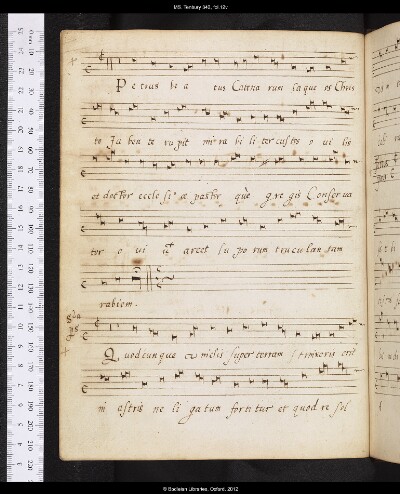 MS. Tenbury 340, fol.12v
Petrus be a tus Catena rum laque os Chris
to Ju ben te ru pit mi ra bi li ter custos o vi lis
et doctor eccle si æ pastor que gre gis Conser va
tor o vi ū arcet lu po rum truculen tam
rabiem.
Quodcunque vinclis super terram strinxeris erit
in astris re li ga tum fortitur et quod re sol
© Bodleian Libraries, Oxford, 2012